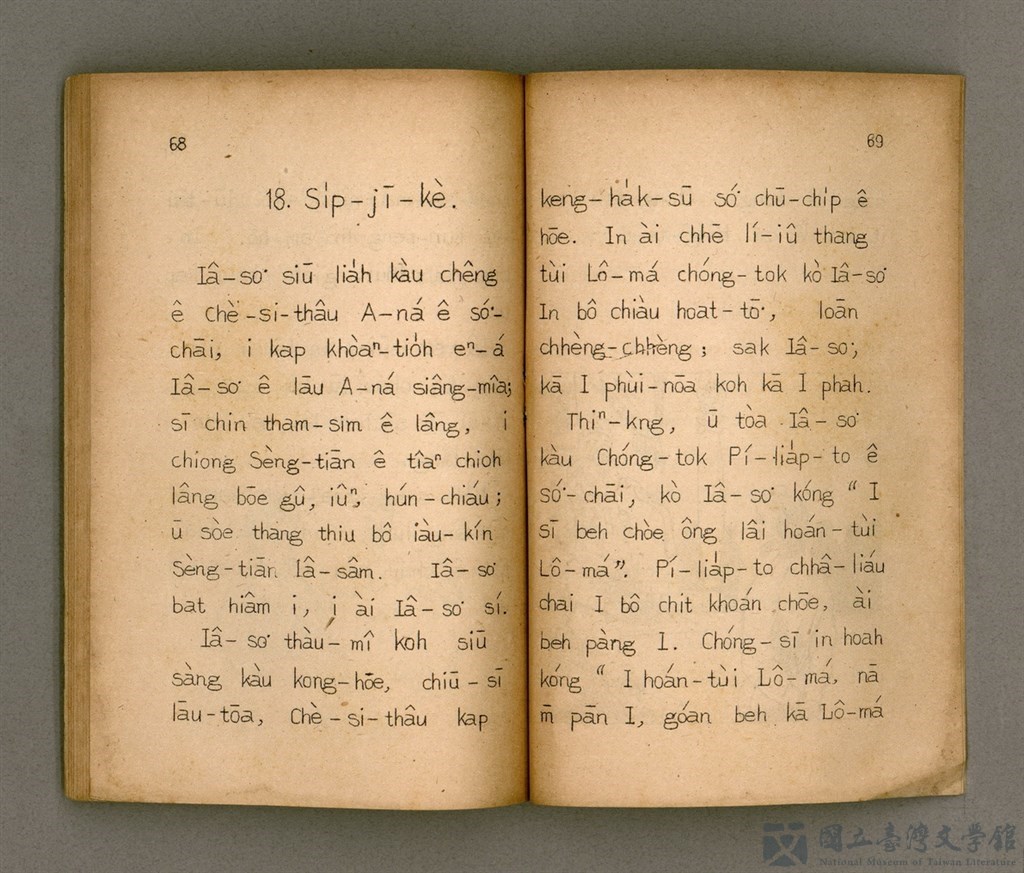 68
18. Si̍p-jī-kè.
Iâ-so͘ siū lia̍h kàu chêng
ê Chè-si-thâu A-ná ê só͘-
chāi, i kap khòaⁿ-tio̍h eⁿ-á
Iâ-so͘ ê lāu A-ná siâng-mîa;
sī chin tham-sim ê lâng, i
chiong Sèng-tiān ê tîaⁿ chioh
lâng bōe gû, iûⁿ, hún-chiáu;
ū sòe thang thiu bô iàu-kín
Sèng-tiān lâ-sâm. Iâ-so͘
bat hiâm i, i ài Iâ-so͘ sí.
Iâ-so͘ thàu-mî koh siū
sàng kàu kong-hōe, chiū-sī
lāu-tōa, Chè-si-thâu kap
69
keng-ha̍k-sū só͘ chū-chi̍p ê
hōe. In ài chhē lí-iû thang
tùi Lô-má chóng-tok kò Iâ-so͘
In bô chiàu hoat-tō͘, loān
chhèng-chhèng; sak Iâ-so͘,
kā I phùi-nōa koh kā I phah.
Thiⁿ-kng, ū tòa Iâ-so͘
kàu Chóng-tok Pí-lia̍p-to ê
só͘-chāi, kò Iâ-so͘ kóng "I
sī beh chòe ông lâi hoán-tùi
Lô-má". Pí-lia̍p-to chhâ-liáu
chai I bô chit khoán chōe, ài
beh pàng I. Chóng-sī in hoah
kóng " I hoán-tùi Lô-má, nā
m̄ pān I, góan beh kā Lô-má
國立臺灣文學館
National Museum of Taiwan Literature